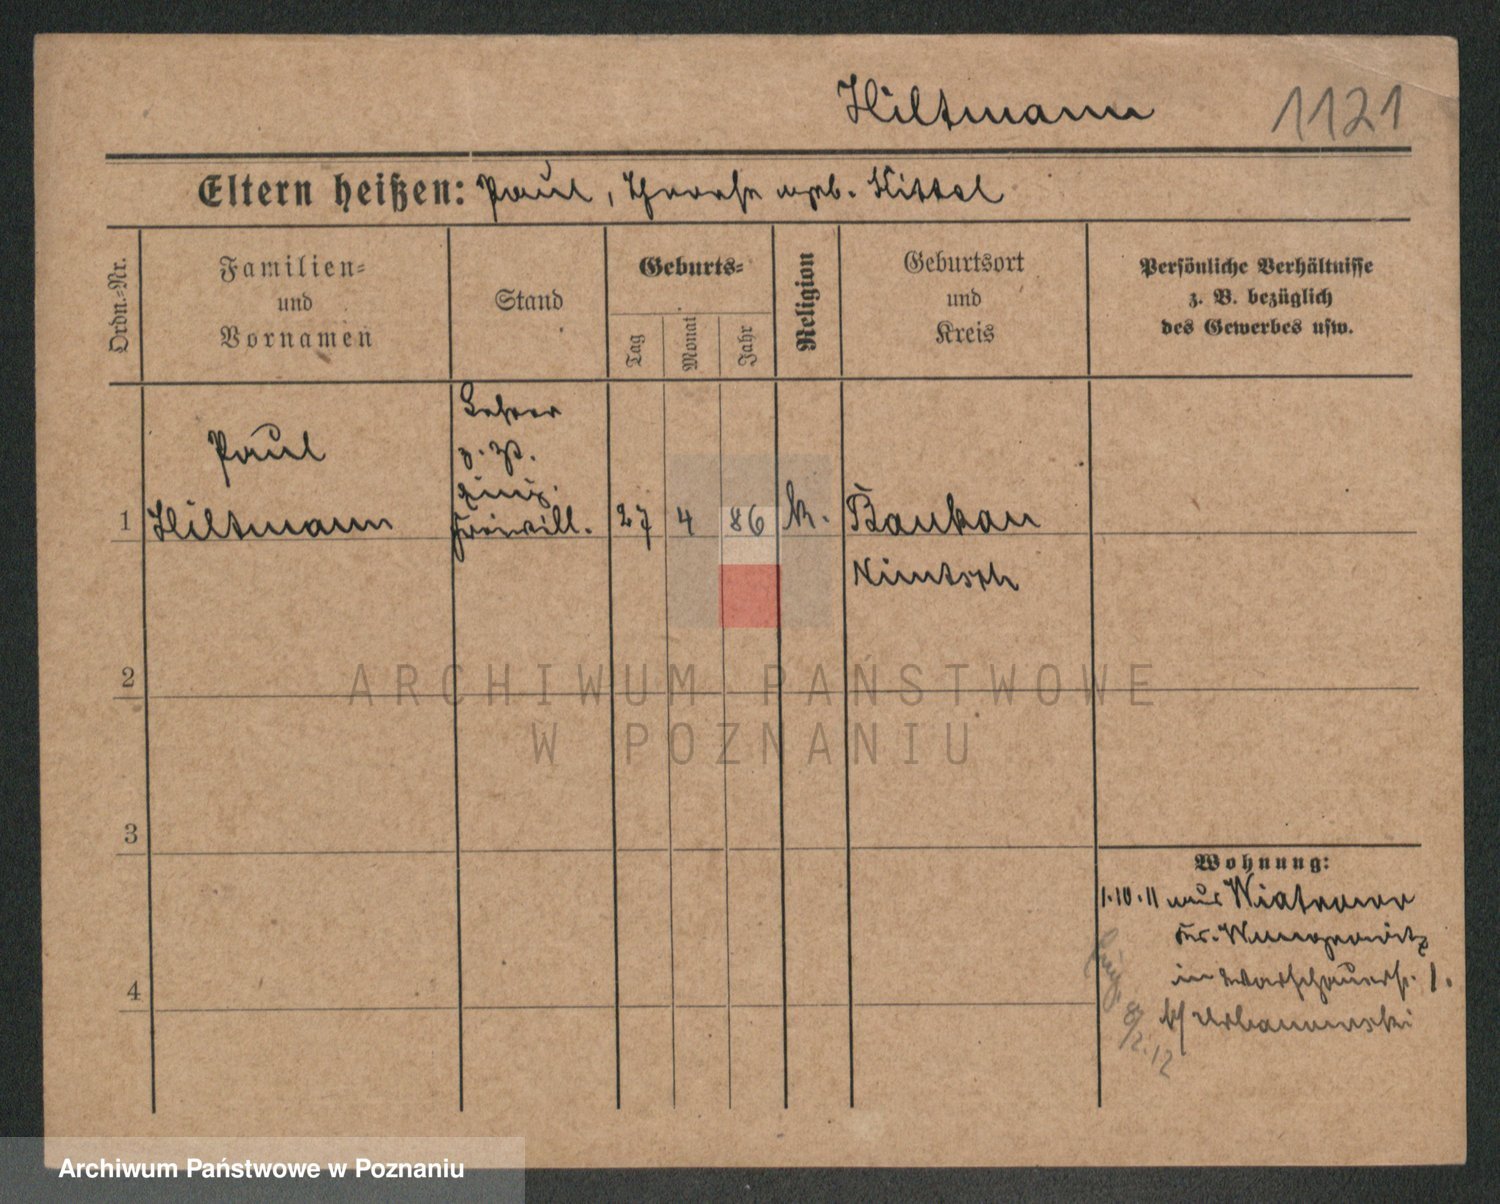 Hiltmann 1121
Eltern heißen: Paul, Therese geb. Kittel
Ordn.-Nr.
Familien-
und
Vornamen
Stand
Geburts-
Tag
Monat
Jahr
Religion
Geburtsort
und
Kreis
Persönliche Verhältnisse
z. B. bezüglich
des Gewerbes usw.
1
Paul
Hiltmann
Lehrer
z. Zt.
Einj.
Freiwill.
27 4 86 k.
Baukau
Nimtsch
2
3
4
Wohnung:
1.10.11 aus Wiatrowo
Krs. Wongrowitz
in Warschauerstr. 1.
b/ Urbanowski
8/2.12
ARCHIWUM PAŃSTWOWE
W POZNANIU
Archiwum Państwowe w Poznaniu